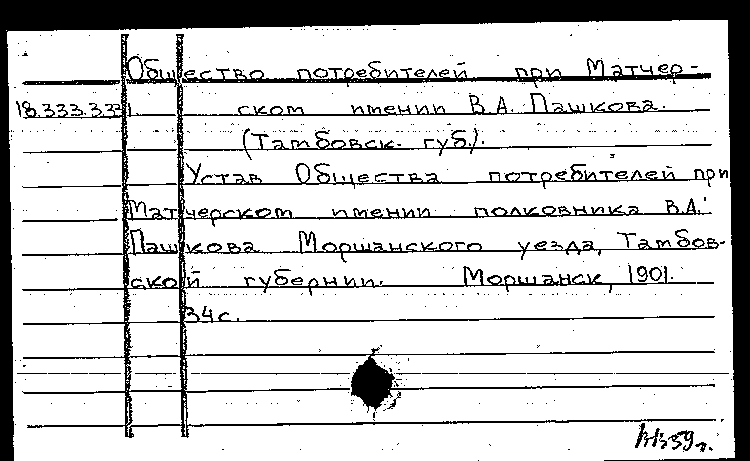 Общество потребителей при Матчер-
18.333.331 ском имении В.А. Пашкова.
(Тамбовск. губ.).
Устав Общества потребителей при
Матчерском имении полковника В.А.
Пашкова Моршанского уезда, Тамбов-
ской губернии. Моршанск, 1901.
34с.